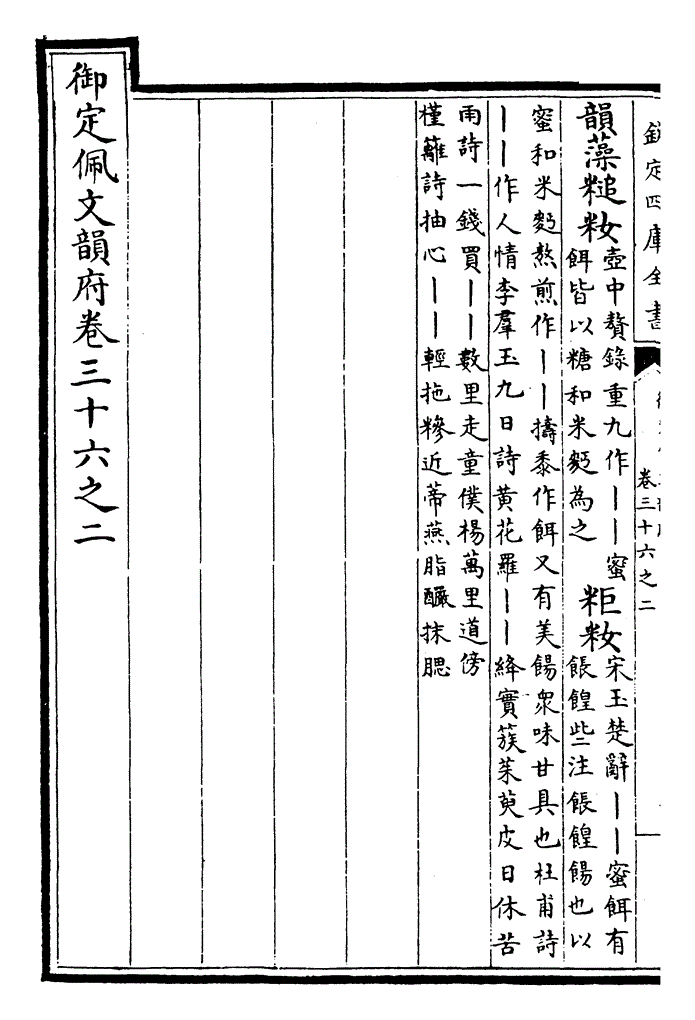 欽定四庫全書
卷三十六之二
韻藻𥻿籹壺中贅錄重九作丨丨蜜
餌皆以糖和米麪為之
粔籹宋玉楚辭丨丨蜜餌有
餦餭些注餦餭餳也以
蜜和米麪熬煎作丨丨擣黍作餌又有美餳衆味甘具也杜甫詩
丨丨作人情李羣玉九日詩黃花羅丨丨絳實簇茱萸皮日休苦
雨詩一錢買丨丨數里走童僕楊萬里道傍
槿籬詩抽心丨丨輕拖糝近蔕燕脂釅抹腮
御定佩文韻府卷三十六之二